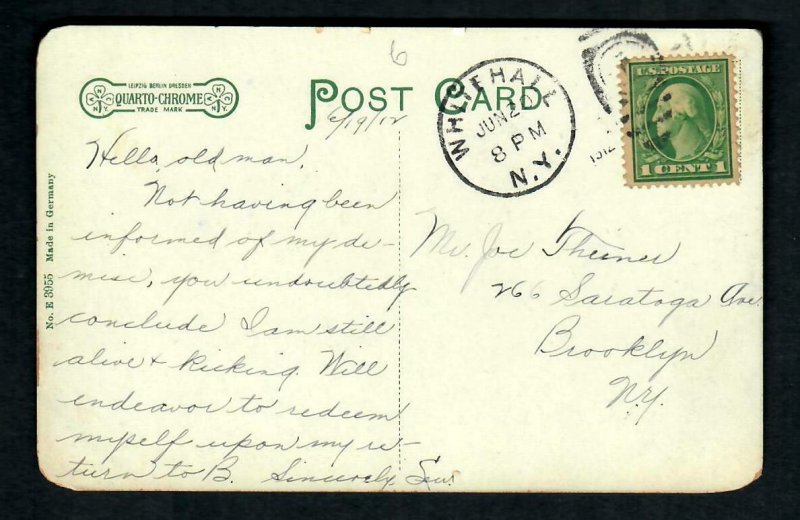 6
LEIPZIG BERLIN DRESDEN
QUARTO-CHROME
TRADE MARK
POST CARD
6/19/12
WHITEHALL
JUN 20
8 PM
N.Y.
1912
U.S. POSTAGE
1 CENT 1
No. E 3955 Made in Germany
Hello, old man,
Not having been
informed of my de-
mise, you undoubtedly
conclude I am still
alive + kicking. Will
endeavor to redeem
myself upon my re-
turn to B. Sincerely,
Mr. Joe Theiner
266 Saratoga Ave.
Brooklyn
N.Y.